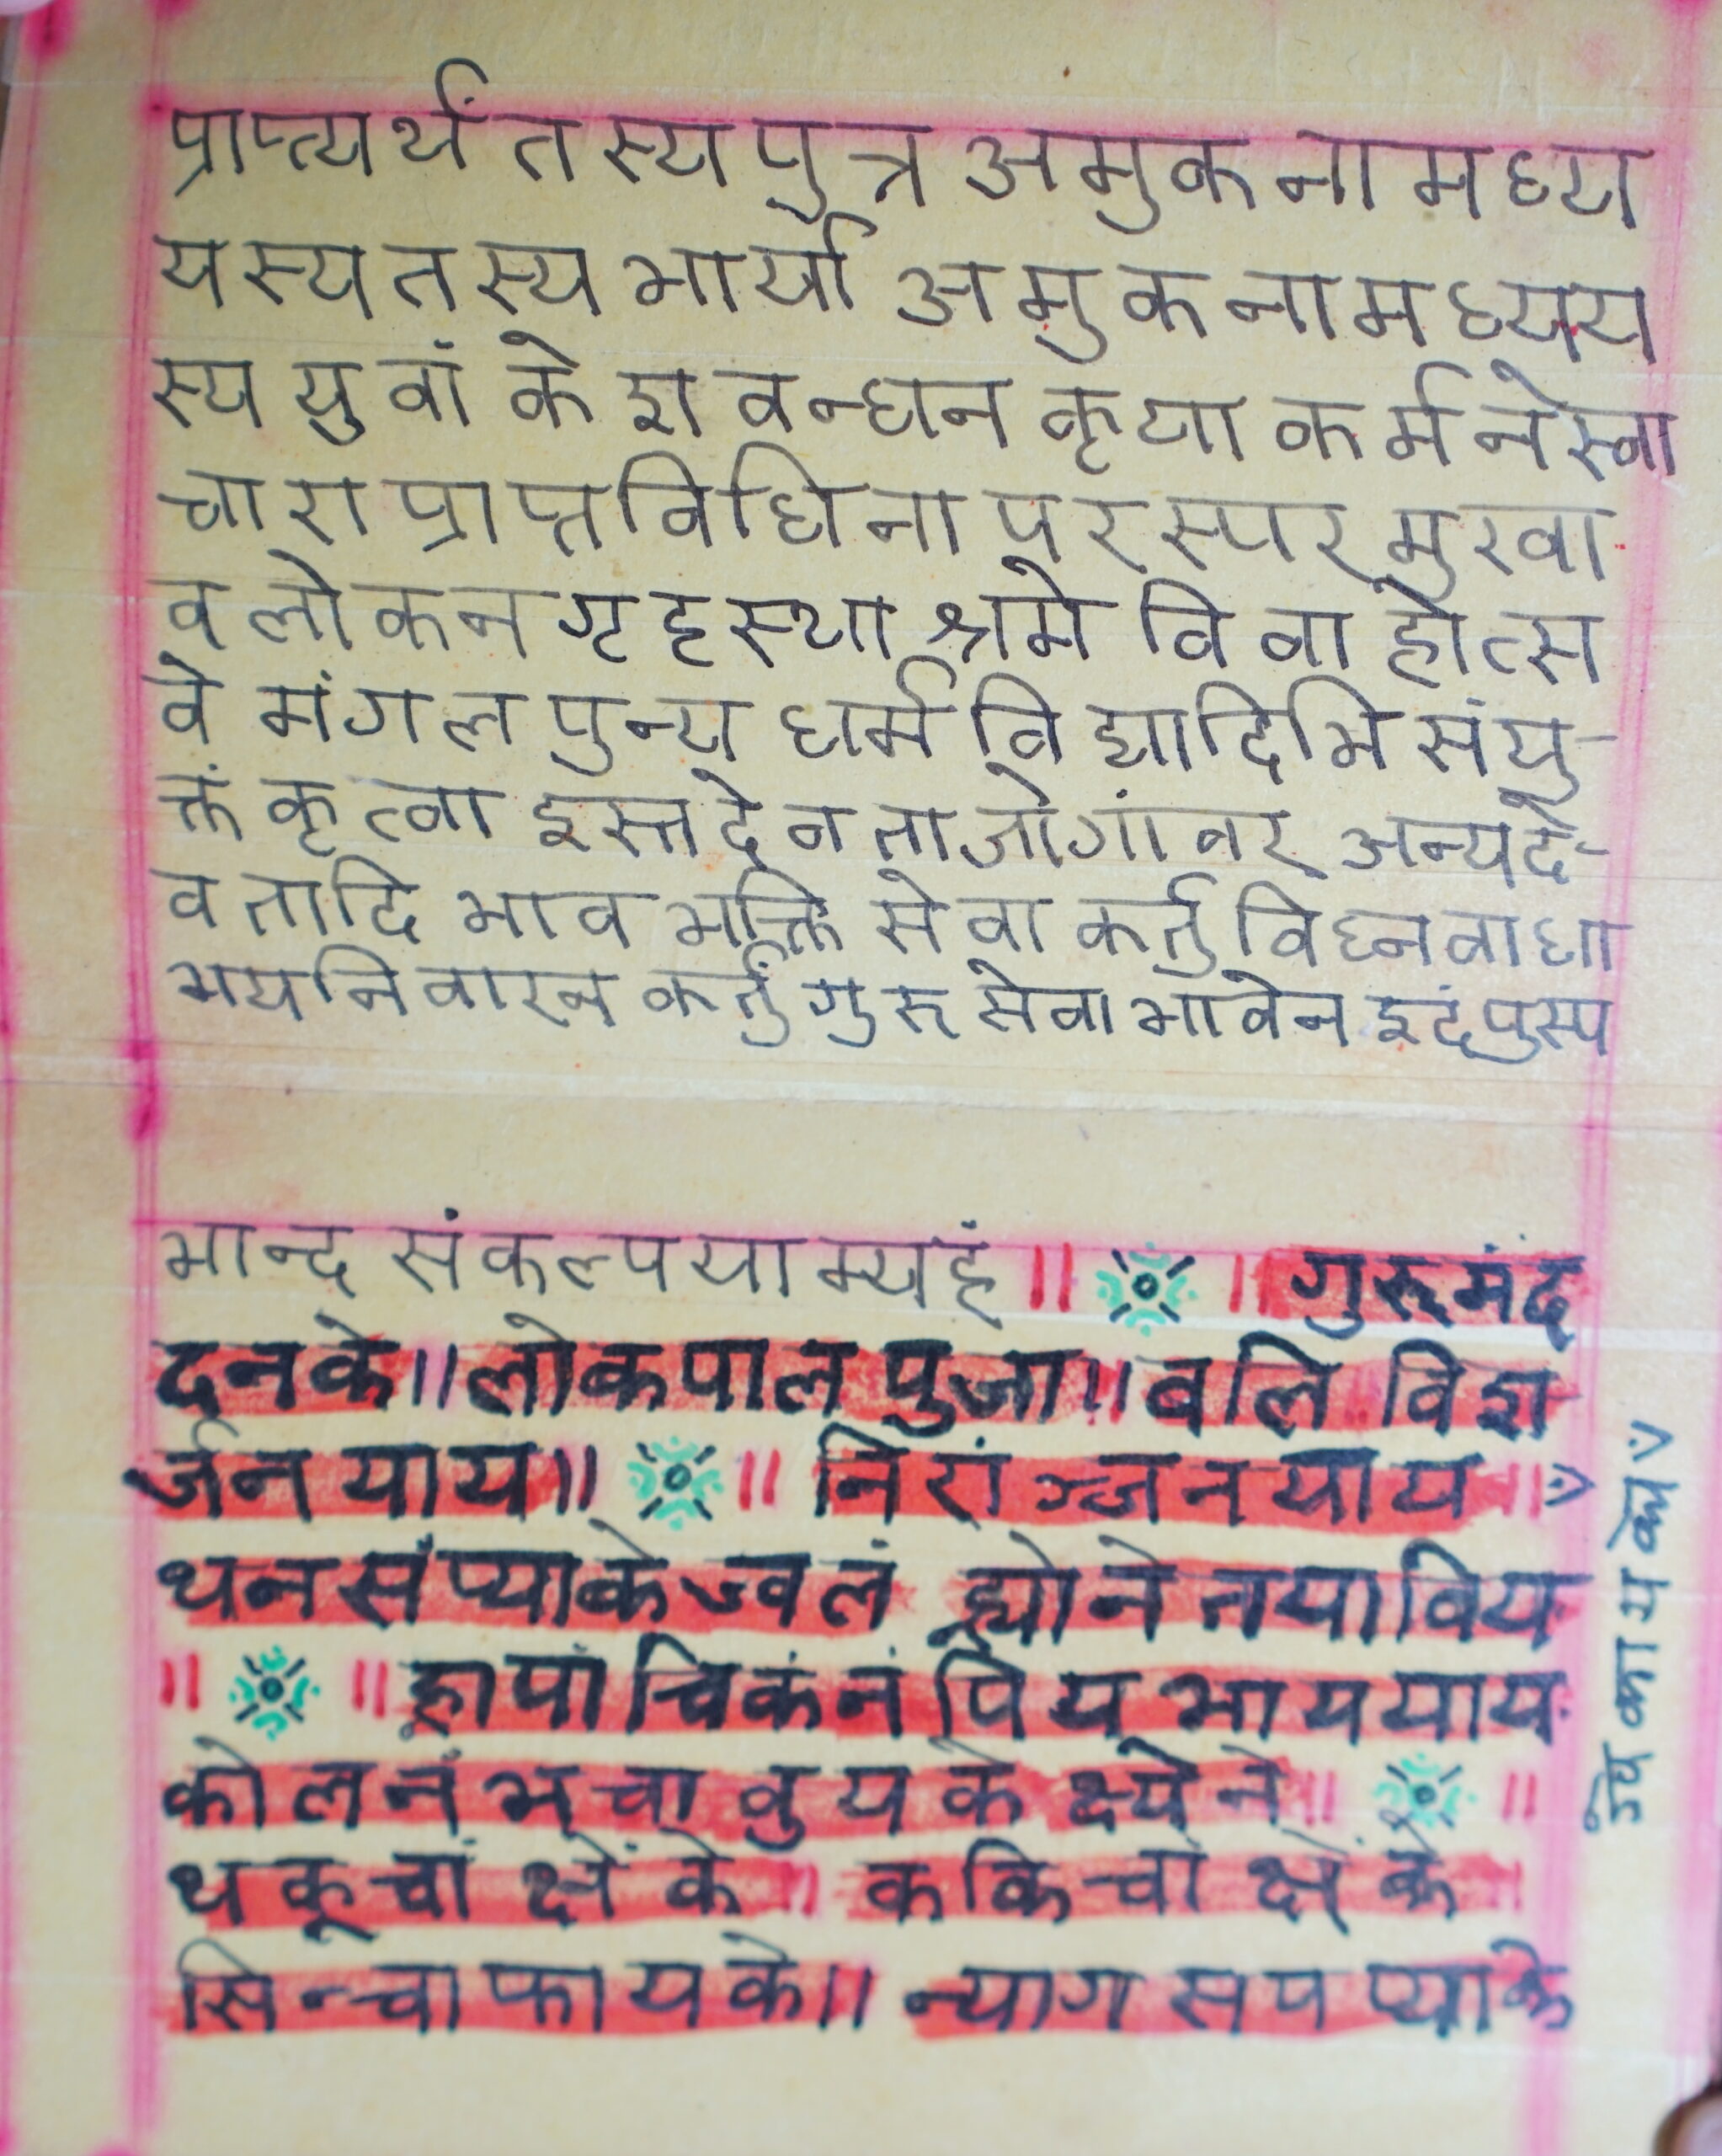 प्राप्त्यर्थं तस्य पुत्र अमुक नामध्य
यस्य तस्य भार्या अमुक नामध्यय
स्य युवां केश वन्धन कृया कर्मनेस्वा
चारा प्राप्तविधिना परस्पर मुखा
वलोकन गृहस्थाश्रमे विवाहोत्स
वे मंगल पुन्य धर्म विद्यादिभि संयु-
क्तं कृत्वा इस्तदेवता जोगांवर अन्यदे-
वतादि भाव भक्ति सेवा कर्तुं विघ्न वाधा
भय निवारन कर्तुं गुरु सेवा भावेन इदं पुस्प
भान्द संकल्पयाम्यहं ॥ ॥ गुरूमंद
दनके॥ लोकपाल पुजा॥ वलि विश
र्जन याय॥ ॥ निरांञ्जन याय ॥
थनसंप्याके ज्वलं ह्योने तया विय
॥ ॥ हापां चिकनं पिय भाय याय
कोलनं भचा वुय के क्ष्येने ॥ ॥
थकूचां क्षें के ॥ ककिचां क्षें के
सिन्चा फायके॥ न्याग सप प्याके